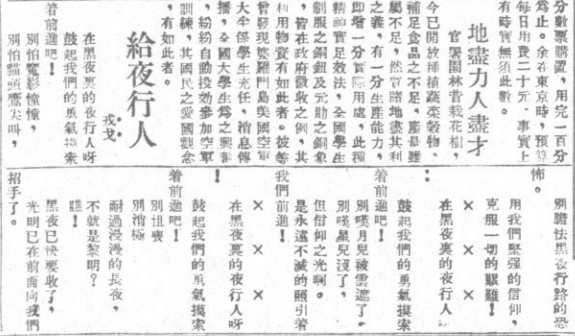 分數票購置，用完一百分
爲止。余在東京時，預算
每日用費二十元，事實上
有時實無須此數。
地盡力人盡才
官署園林昔栽花樹，
今已開放種植蔬菜穀物，
補足食品之不足，產量雖
屬不足，然實諸地盡其利
之義，有一分生產能力，
即增一分實際用處，此種
精神實足效法，全國學生
制服之銅鈕及元勛之銅象
，皆在政府徵收之例，其
利用物資有如此者。彼等
曾發現婆羅門島英國空軍
大半係學生充任，消息傳
播，全國大學生爲之興奮
，紛紛自動投効參加空軍
訓練，其國民之愛國觀念
，有如此者。
給夜行人
戎戈
在黑夜裏的夜行人呀
鼓起我們的勇氣摸索
着前進吧！
別怕魔影憧憧，
別怕貓頭鷹尖叫，
別膽怯黑夜行路的恐
怖。
用我們堅强的信仰，
克服一切的艱難！
× × ×
在黑夜裏的夜行人呀
：
鼓起我們的勇氣摸索
着前進吧！
別嘆月兒被雲遮了。
別嘆星兒沒了，
但信仰之光啊。
是永遠不滅的照引着
我們前進！
× × ×
在黑夜裏的夜行人呀
！
鼓起我們的勇氣摸索
着前進吧！
別沮喪
別消極
耐過漫漫的長夜，
不就是黎明？
聽！
黑夜已快要收了，
光明已在前面向我們
招手了。